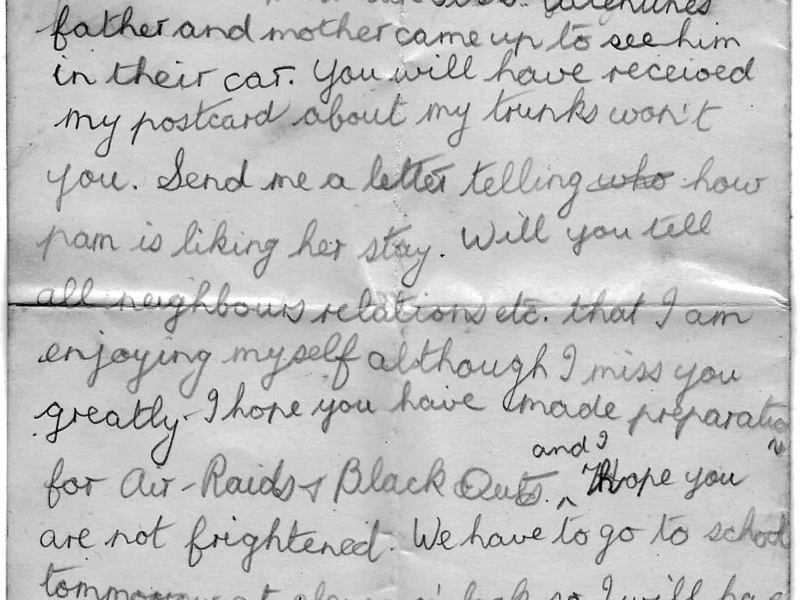 Valentines
father and mother came up to see him
in their car. You will have received
my postcard about my trunks won't
you. Send me a letter telling who how
pam is liking her stay. Will you tell
all neighbours relations etc. that I am
enjoying myself although I miss you
greatly. I hope you have made preparatio
ns
and I
for Air-Raids & Black Outs. ^ Hope you
are not frightened. We have to go to school
tommorow at eleven o'clock so I will